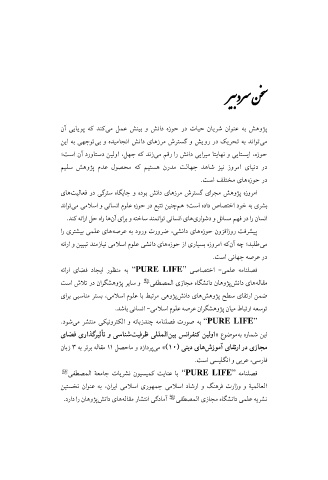 سخن سردبیر
پژوهش به عنوان شریان حیات در حوزه دانش و بینش عمل می‌کند که پویایی آن
می‌تواند به تحریک در رویش و گسترش مرزهای دانش انجامیده و بی‌توجهی به این
حوزه، ایستایی و نهایتا میرایی دانش را رقم می‌زند که جهل، اولین دستاورد آن است؛
در دنیای امروز نیز شاهد جهالت مدرن هستیم که محصول عدم پژوهش سلیم
در حوزه‌های مختلف است.
امروزه پژوهش مجرای گسترش مرزهای دانش بوده و جایگاه سترگی در فعالیت‌های
بشری به خود اختصاص داده است؛ هم‌چنین تتبع در حوزه علوم انسانی و اسلامی می‌تواند
انسان را در فهم مسائل و دشواری‌های انسانی توانمند ساخته و برای آن‌ها راه حل ارائه کند.
پیشرفت روزافزون حوزه‌های دانشی، ضرورت ورود به عرصه‌های علمی بیشتری را
می‌طلبد؛ چه آن‌که امروزه بسیاری از حوزه‌های دانشی علوم اسلامی نیازمند تبیین و ارائه
در عرصه جهانی است.
فصلنامه علمی- اختصاصی "PURE LIFE" به منظور ایجاد فضای ارائه
مقاله‌های دانش‌پژوهان دانشگاه مجازی المصطفی و سایر پژوهشگران در تلاش است
ضمن ارتقای سطح پژوهش‌های دانش‌پژوهی مرتبط با علوم اسلامی، بستر مناسبی برای
توسعه ارتباط میان پژوهشگران عرصه علوم اسلامی- انسانی باشد.
"PURE LIFE" به صورت فصلنامه چندزبانه و الکترونیکی منتشر می‌شود.
این شماره به‌موضوع «اولین کنفرانس بین‌المللی ظرفیت‌شناسی و تأثیرگذاری فضای
مجازی در ارتقای آموزش‌های دینی (۱۰)» می‌پردازد و ماحصل ۱۱ مقاله برتر به ۳ زبان
فارسی، عربی و انگلیسی است.
فصلنامه "PURE LIFE" با عنایت کمیسیون نشریات جامعة المصطفی
العالمیة و وزارت فرهنگ و ارشاد اسلامی جمهوری اسلامی ایران، به عنوان نخستین
نشریه علمی دانشگاه مجازی المصطفی آمادگی انتشار مقاله‌های دانش‌پژوهان را دارد.